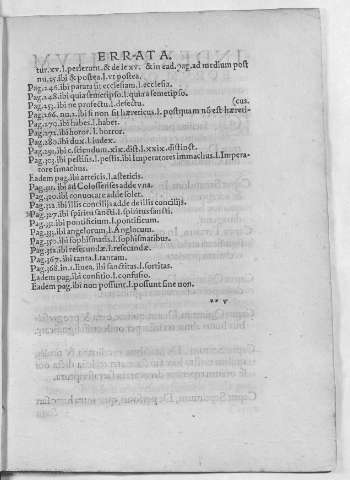 ERRATA.
tur.xv.l.perlerunt & de le xv. & in ead. pag. ad medium post
nu.25.ibi & postea.l.vt postea.
Pag.246.ibi parata sit ecclesiam.l.ecclesia.
Pag.248.ibi quia semetipso.l.quia a semetipso.
Pag.253.ibi ne profectu.l.defectu. (cus.
Pag.266.nu.2.ibi si non sit hærericus.l.postquam nō est hæreti-
Pag.270.ibi habes.l.habet.
Pag.271.ibi horor.l.horror.
Pag.280.ibi dux.l.index.
Pag.291.ibi c.sciendum.xix.dist.l.xxix.distinct.
Pag.303.ibi pestius.l.pestis.ibi Imperatores immachus.l.Impera-
tore simachus.
Eadem pag.ibi articis.l.astericis.
Pag.311.ibi ad Colossenses adde vna.
Pag.320.ibi conuocare adde solet.
Pag.322.ibi illis concilijs adde de illis concilijs.
Pag.327.ibi spiritu sancti.l.spiritus sancti.
Pag.332.ibi pontificium.l.pontificum.
Pag.333.ibi angelorum.l.Anglocum.
Pag.350.ibi sophismatis.l.sophismatibus.
Pag.352.ibi resecundæ.l.resecandæ.
Pag.367.ibi tanta.l.tantam.
Pag.368.in.2.linea.ibi sanctitas.l.sortitas.
Eadem pag.ibi consitio.l.confusio.
Eadem pag.ibi non possunt.l.possunt sine non.
** v